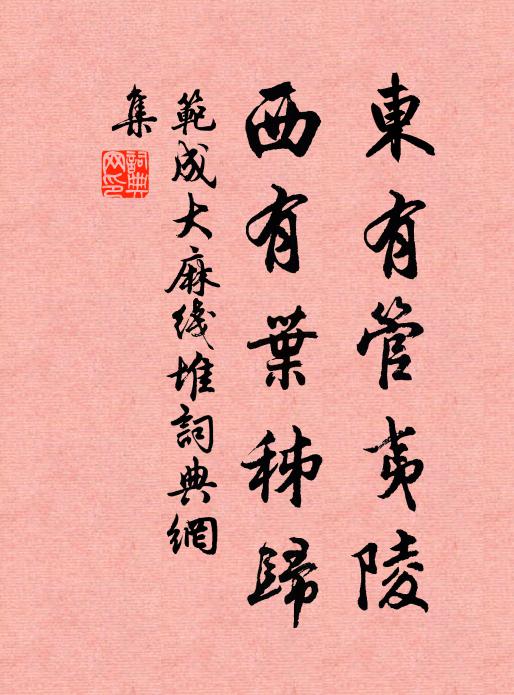 東有管夷陵
西有葉秭歸
範成大麻线堆詞典網
集
詞典网印